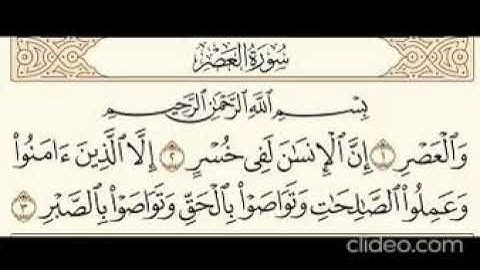 سُورَةُ العَصْرِ
بِسْمِ اللَّهِ الرَّحْمَٰنِ الرَّحِيمِ
وَالْعَصْرِ ١ إِنَّ الْإِنسَانَ لَفِي خُسْرٍ ٢ إِلَّا الَّذِينَ ءَامَنُوا
وَعَمِلُوا الصَّالِحَاتِ وَتَوَاصَوْا بِالْحَقِّ وَتَوَاصَوْا بِالصَّبْرِ ٣
clideo.com